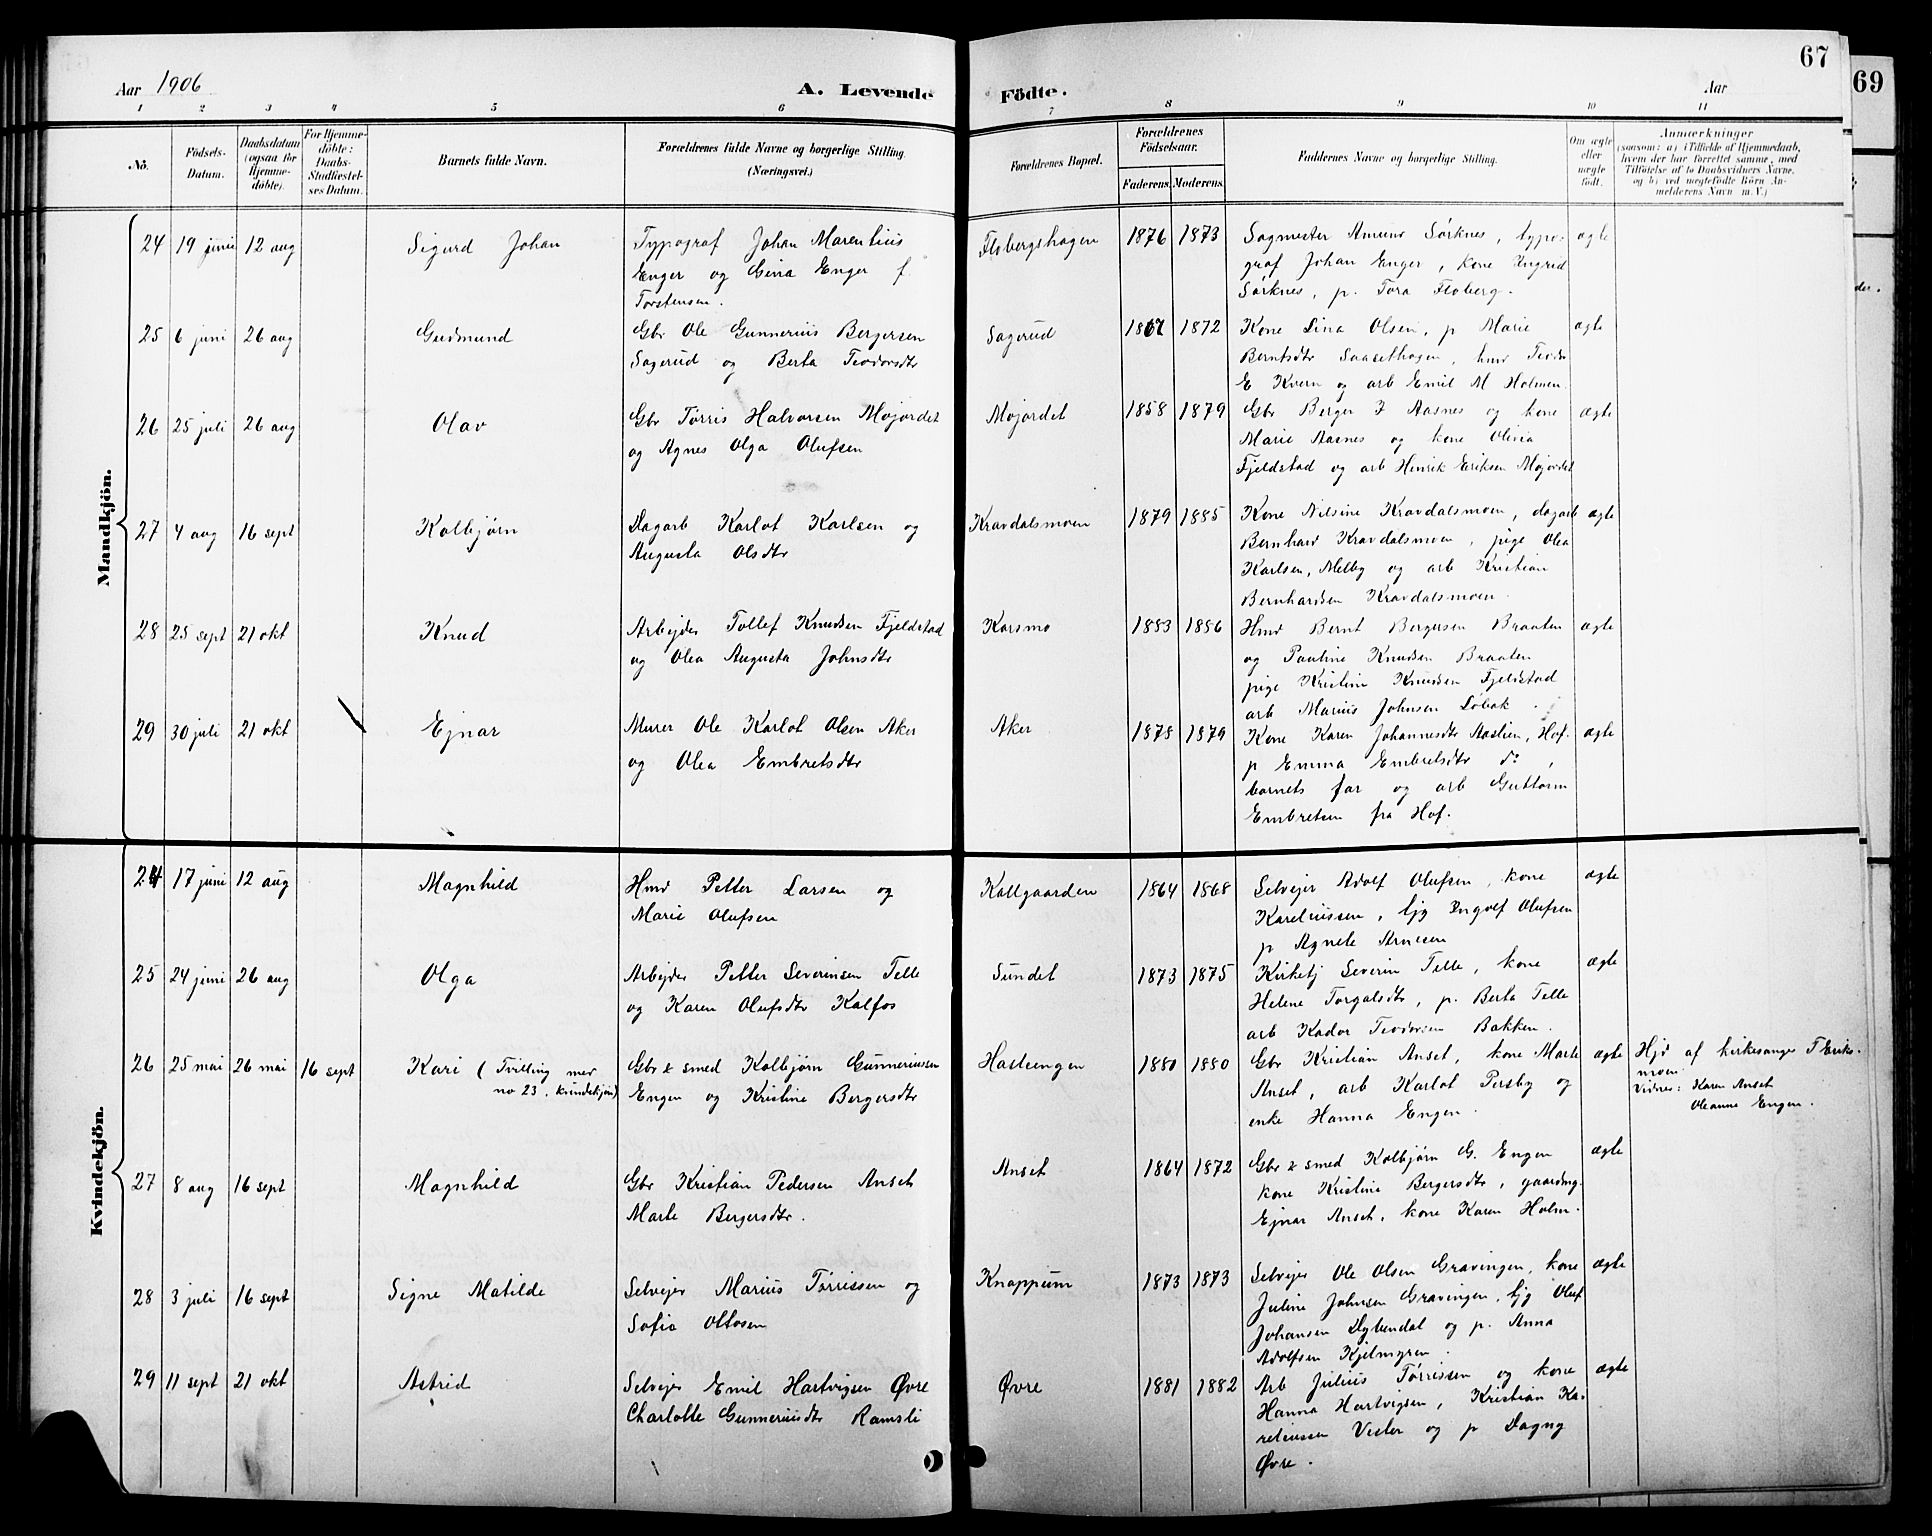 Aar 1906
A. Levende
Födte.
Aar
67
69
1 2 3 4 5 6 7 8 9 10 11
No.
Födsels-
Datum.
Daabsdatum
(ogsaa for
Hjemme-
döbte).
For Hjemme-
döbte:
Daabs-
Stadfæstel-
ses Datum.
Barnets fulde Navn.
Forældrenes fulde Navne og borgerlige Stilling.
(Næringsvei.)
Forældrenes Bopæl.
Forældrenes
Födselsaar.
Faderens.
Moderens.
Faddernes Navne og borgerlige Stilling.
Om ægte
eller
uægte
födt.
Anmærkninger
(saasom: a) i Tilfælde af Hjemmedaab,
hvem der har forrettet samme, med
Tilföielse af to Daabsvidners Navne,
og b) ved uægtefödte Börn An-
melderens Navn m. V.)
Mandkjön.
24 19 juni 12 aug Sigurd Johan
Typograf Johan Marentius
Enger og Gina Enger f.
Torstensen.
Flobergshagen 1876 1873
Sagmester Amund Sørknes, typo-
graf Johan Enger, kone Ingrid
Sørknes, p. Tora Floberg.
ægte
25 6 juni 26 aug Gudmund
Gbr Ole Gunnerius Bergersen
Sagerud og Berta Teodorsdtr
Sagerud 1867 1872
Kone Lina Olsen, p Marie
Berntsdtr Saasethagen, hmd Teodor
E Kvern og arb Emil M Holmen.
ægte
26 25 juli 26 aug Olav
Gbr Tørris Halvorsen Mojordet
og Agnes Olga Olufsen
Mojordet 1858 1879
Gbr Berger J Aasnes og kone
Marie Aasnes og kone Olivia
Fjeldstad og arb Henrik Eriksen Mojordet
ægte
27 4 aug 16 sept Kolbjørn
Dagarb Karlot Karlsen og
Augusta Olsdtr
Kravdalsmoen 1879 1885
Kone Nilsine Kravdalsmoen, dagarb
Bernhard Kravdalsmoen, pige Olea
Karlsen, Melby og arb Kristian
Bernhardsen Kravdalsmoen.
ægte
28 25 sept 21 okt Knud
Arbejder Tollef Knudsen Fjeldstad
og Olea Augusta Johnsdtr
Karsmo 1883 1886
Hmd Bernt Bergersen Braaten
og Pauline Knudsen Braaten
pige Kristine Knudsen Fjeldstad
arb Marius Johnsen Løbak.
ægte
29 30 juli 21 okt Ejnar
Murer Ole Karlot Olsen Aker
og Olea Embretsdtr
Aker 1878 1879
Kone Karen Johannesdtr Aastien, Hof.
p Emma Embretsdtr do,
barnets far og arb Guttorm
Embretsen fra Hof.
ægte
Kvindekjön.
24 17 juni 12 aug Magnhild
Hmd Petter Larsen og
Marie Olufsen
Kallgaarden 1864 1868
Selvejer Adolf Olufsen, kone
Kareliussen, ljg Ingolf Olufsen
p Agnete Arnesen
ægte
25 24 juni 26 aug Olga
Arbejder Petter Severinsen Telle
og Karen Olufsdtr Kalfos
Sundet 1873 1875
Kirketj Severin Telle, kone
Helene Torgalsdtr, p. Berta Telle
arb Kador Teodorsen Bakken.
ægte
26 25 mai 26 mai 16 sept Kari (Tvilling med
no 23, kvindekjøn)
Gbr & smed Kolbjørn Gunneriussen
Engen og Kristine Bergersdtr
Hasleengen 1880 1880
Gbr Kristian Anset, kone Marte
Anset, arb Karlot Persby og
enke Hanna Engen.
ægte
Hjd af kirkesanger T Eriks-
moen.
Vidner: Karen Anset
Oleanne Engen.
27 8 aug 16 sept Magnhild
Gbr Kristian Pedersen Anset
Marte Bergersdtr.
Anset 1864 1872
Gbr & smed Kolbjørn G. Engen
kone Kristine Bergersdtr, gaardmg.
Ejnar Anset, kone Karen Holm.
ægte
28 3 juli 16 sept Signe Matilde
Selvejer Marius Tørrissen og
Sofia Ottosen
Knappum 1873 1873
Selvejer Ole Olsen Gravingen, kone
Juline Johnsen Gravingen, ljg Oluf
Johansen Dybendal og p. Anna
Adolfsen Kjelmyren.
ægte
29 11 sept 21 okt Astrid
Selvejer Emil Hartvigsen Øvre
Charlotte Gunneriusdtr Ramsli
Øvre 1881 1882
Arb Julius Tørrissen og kone
Hanna Hartvigsen, Kristian Ka-
reliussen Vester og p Dagny
Øvre.
ægte